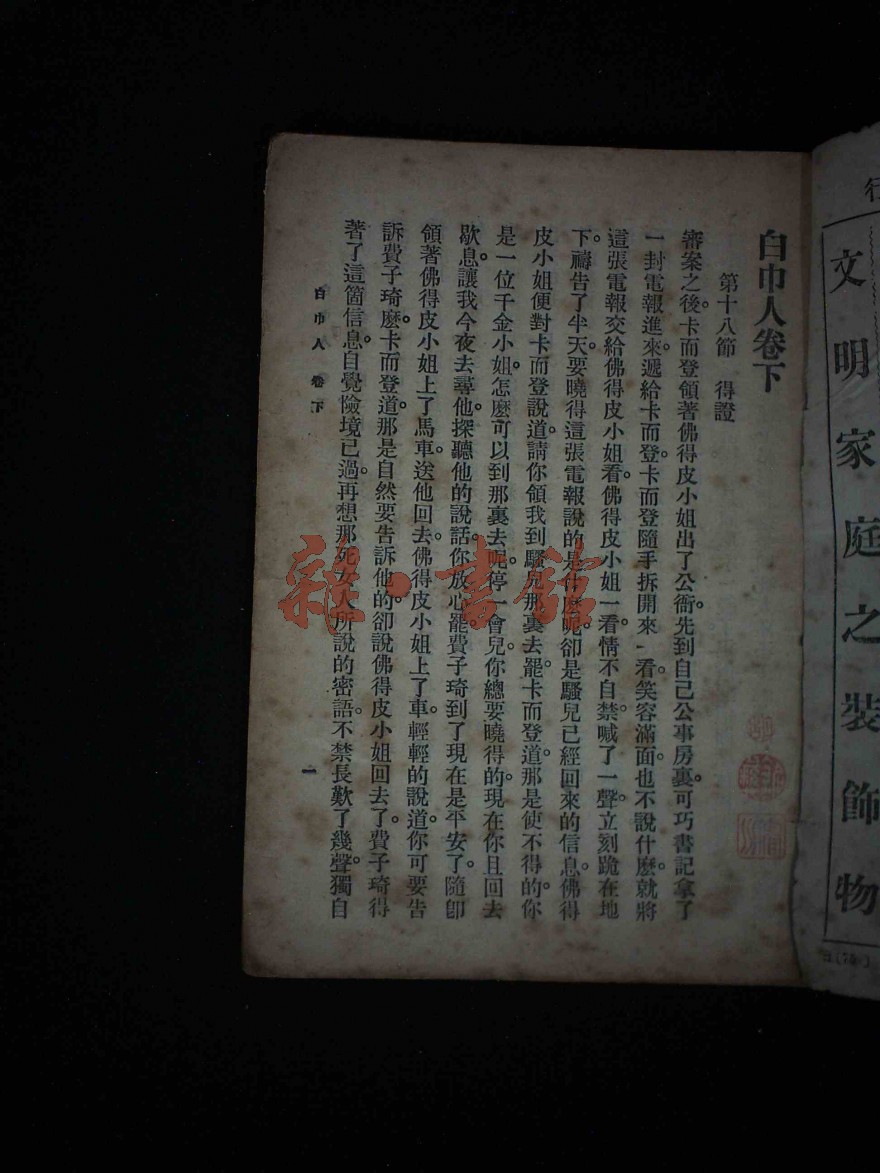 行
文明家庭之裝飾物
白巾人卷下
第十八節 得證
審案之後。卡而登領著佛得皮小姐出了公衙。先到自己公事房裏。可巧書記拿了
一封電報進來。遞給卡而登。卡而登隨手拆開來一看。笑容滿面。也不說什麽。就將
這張電報交給佛得皮小姐看。佛得皮小姐一看。情不自禁。喊了一聲。立刻跪在地
下。禱告了半天。要曉得這張電報說的是什麽呢。卻是騷兒已經回來的信息。佛得
皮小姐便對卡而登說道。請你領我到騷兒那裏去罷。卡而登道。那是使不得的。你
是一位千金小姐。怎麽可以到那裏去呢。停一會兒。你總要曉得的。現在你且回去
歇息。讓我今夜去尋他。探聽他的說話。你放心罷。費子琦到了現在是平安了。隨卽
領著佛得皮小姐上了馬車。送他回去。佛得皮小姐上了車。輕輕的說道。你可要告
訴費子琦麽。卡而登道。那是自然要告訴他的。卻說佛得皮小姐回去了。費子琦得
著了這箇信息。自覺險境已過。再想那死女人所說的密語。不禁長歎了幾聲。獨自
白巾人 卷下
一
雜·書館